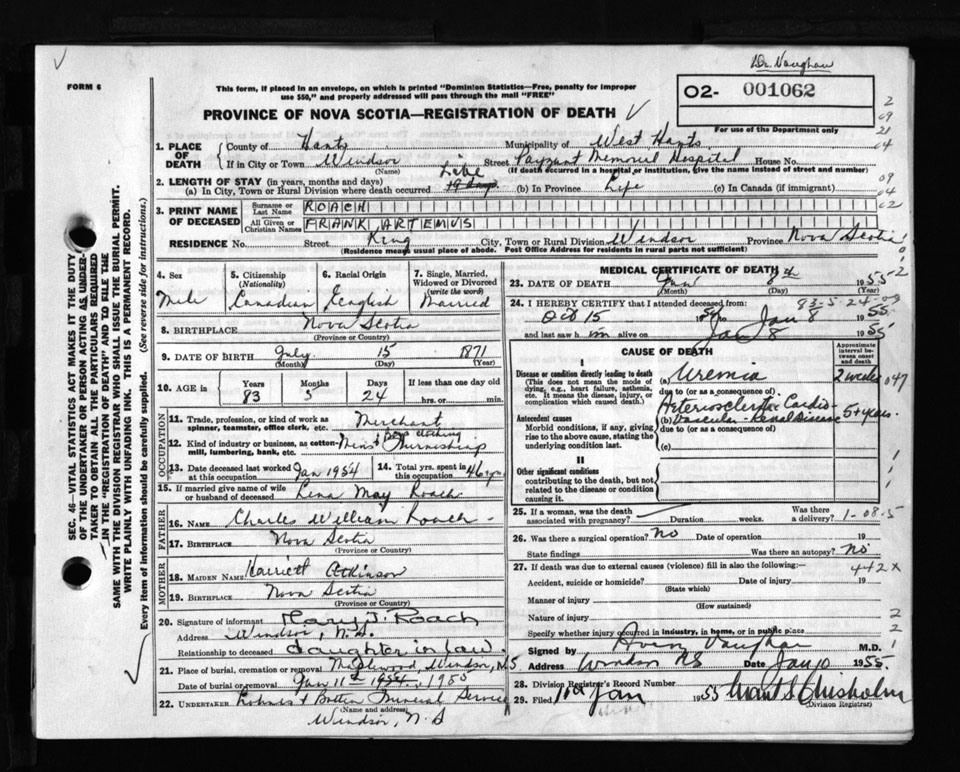 Dr. Vaughan
FORM 6
This form, if placed in an envelope, on which is printed "Dominion Statistics—Free, penalty for improper
use $50," and properly addressed will pass through the mail "FREE"
02- 001062
PROVINCE OF NOVA SCOTIA—REGISTRATION OF DEATH
For use of the Department only
1. PLACE OF DEATH
County of Hants Municipality of West Hants
If in City or Town Windsor Street Payzant Memorial Hospital House No.
(Name) (If death occurred in a hospital or institution, give the name instead of street and number)
2. LENGTH OF STAY (in years, months and days)
(a) In City, Town or Rural Division where death occurred Life (b) In Province Life (c) In Canada (if immigrant)
3. PRINT NAME OF DECEASED
Surname or Last Name ROACH
All Given or Christian Names FRANK ARTEMUS
RESIDENCE No. Street King City, Town or Rural Division Windsor Province Nova Scotia
(Residence means usual place of abode. Post Office Address for residents in rural parts not sufficient)
4. Sex Male
5. Citizenship (Nationality) Canadian
6. Racial Origin English
7. Single, Married, Widowed or Divorced (write the word) Married
8. BIRTHPLACE Nova Scotia
(Province or Country)
9. DATE OF BIRTH July 15 1871
(Month) (Day) (Year)
10. AGE in Years 83 Months 5 Days 24 If less than one day old hrs. or min.
OCCUPATION
11. Trade, profession, or kind of work as spinner, teamster, office clerk, etc. Merchant
12. Kind of industry or business, as cotton-mill, lumbering, bank, etc. Men's & Boys clothing Furnishing
13. Date deceased last worked at this occupation Jan 1954
14. Total yrs. spent in this occupation 46 yrs
15. If married give name of wife or husband of deceased Lena May Roach
FATHER
16. NAME Charles William Roach
17. BIRTHPLACE Nova Scotia
(Province or Country)
MOTHER
18. MAIDEN NAME Harriett Atkinson
19. BIRTHPLACE Nova Scotia
(Province or Country)
20. Signature of informant Mary J. Roach
Address Windsor, N.S.
Relationship to deceased daughter in law
21. Place of burial, cremation or removal Maplewood Windsor, N.S.
Date of burial or removal Jan 11th 1954, 1955
22. UNDERTAKER Funeral Service
(Name and address)
Windsor, N.S
MEDICAL CERTIFICATE OF DEATH
23. DATE OF DEATH Jan 8th 1955
(Month) (Day)
24. I HEREBY CERTIFY that I attended deceased from: 83-5-24-09
Oct 15 1954 to Jan 8 1955
and last saw him alive on Jan 8 1955
CAUSE OF DEATH
Approximate interval between onset and death
I
Disease or condition directly leading to death
(This does not mean the mode of dying, e.g., heart failure, asthenia, etc. It means the disease, injury, or complication which caused death.)
(a) Uremia 2 weeks 047
due to (or as a consequence of)
Antecedent causes
Morbid conditions, if any, giving rise to the above cause, stating the underlying condition last.
(b) Arteriosclerotic Cardio-Vascular-Renal Disease 5+ years.
due to (or as a consequence of)
(c)
II
Other significant conditions contributing to the death, but not related to the disease or condition causing it.
25. If a woman, was the death associated with pregnancy? Duration weeks. Was there a delivery? 1-08-5
26. Was there a surgical operation? No Date of operation 19
State findings Was there an autopsy? No
27. If death was due to external causes (violence) fill in also the following:— 442X
Accident, suicide or homicide? Date of injury 19
(State which)
Manner of injury
(How sustained)
Nature of injury
Specify whether injury occurred in industry, in home, or in public place
Signed by Avery Vaughan M.D.
Address Windsor NS Date Jan 10 1955
28. Division Registrar's Record Number
29. Filed 10th Jan 1955 Chisholm
(Division Registrar)
SEC. 46—VITAL STATISTICS ACT MAKES IT THE DUTY
OF THE UNDERTAKER OR PERSON ACTING AS UNDERTAKER TO OBTAIN ALL THE PARTICULARS REQUIRED
IN THE "REGISTRATION OF DEATH" AND TO FILE THE
SAME WITH THE DIVISION REGISTRAR WHO SHALL ISSUE THE BURIAL PERMIT.
WRITE PLAINLY WITH UNFADING INK. THIS IS A PERMANENT RECORD.
Every item of information should be carefully supplied. (See reverse side for instructions.)